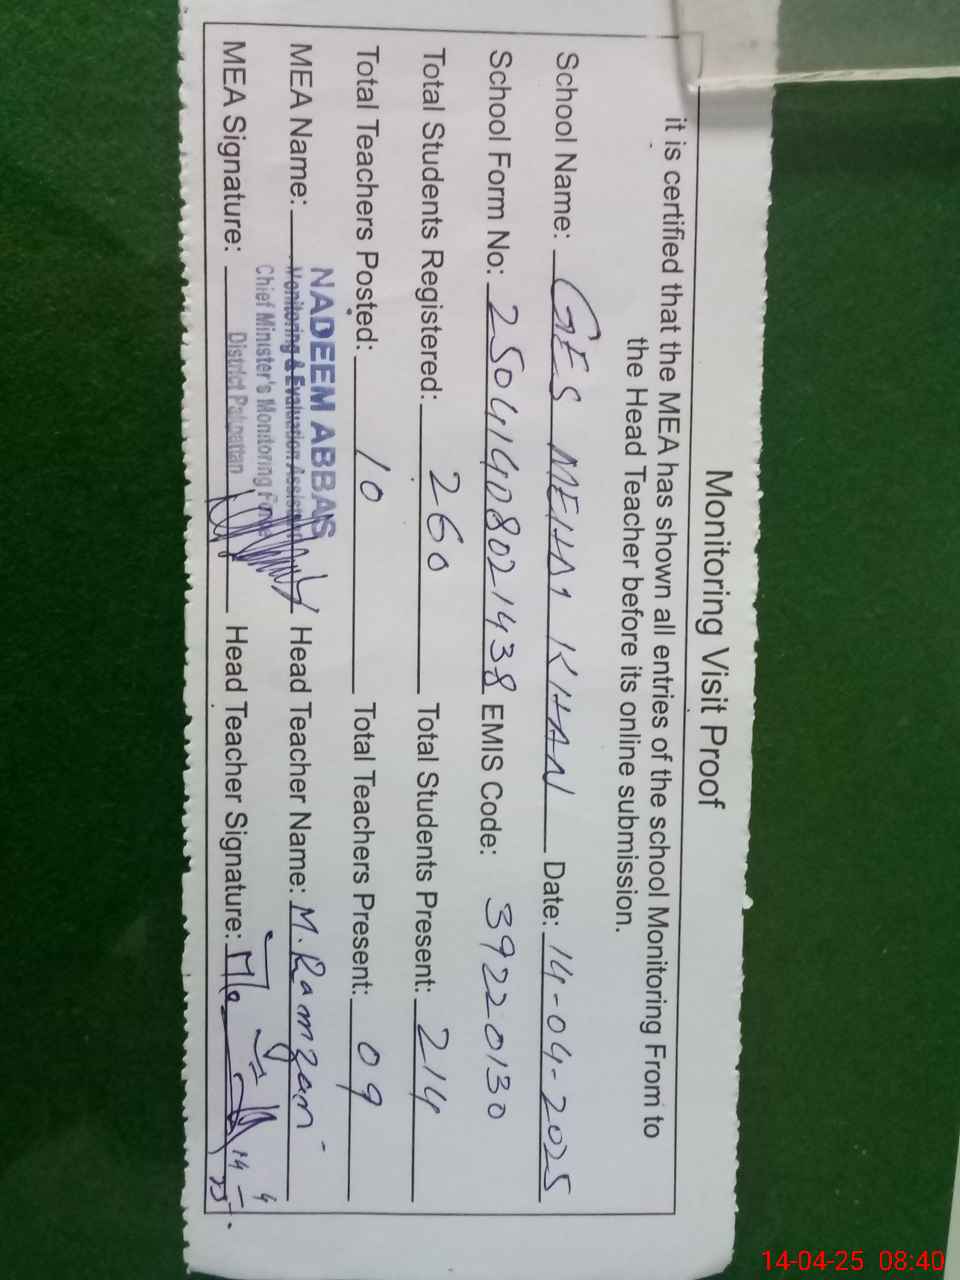 Monitoring Visit Proof
it is certified that the MEA has shown all entries of the school Monitoring From to
the Head Teacher before its online submission.
School Name: GES MEHAR KHAN Date: 14-04-2025
School Form No: 25041408021438 EMIS Code: 39220130
Total Students Registered: 260 Total Students Present: 214
Total Teachers Posted: 10 Total Teachers Present: 09
NADEEM ABBAS
MEA Name: Monitoring & Evaluation Assistant Head Teacher Name: M. Ramzan
Chief Minister's Monitoring Force
MEA Signature: District Pakpattan Head Teacher Signature:
14-04-25 08:40